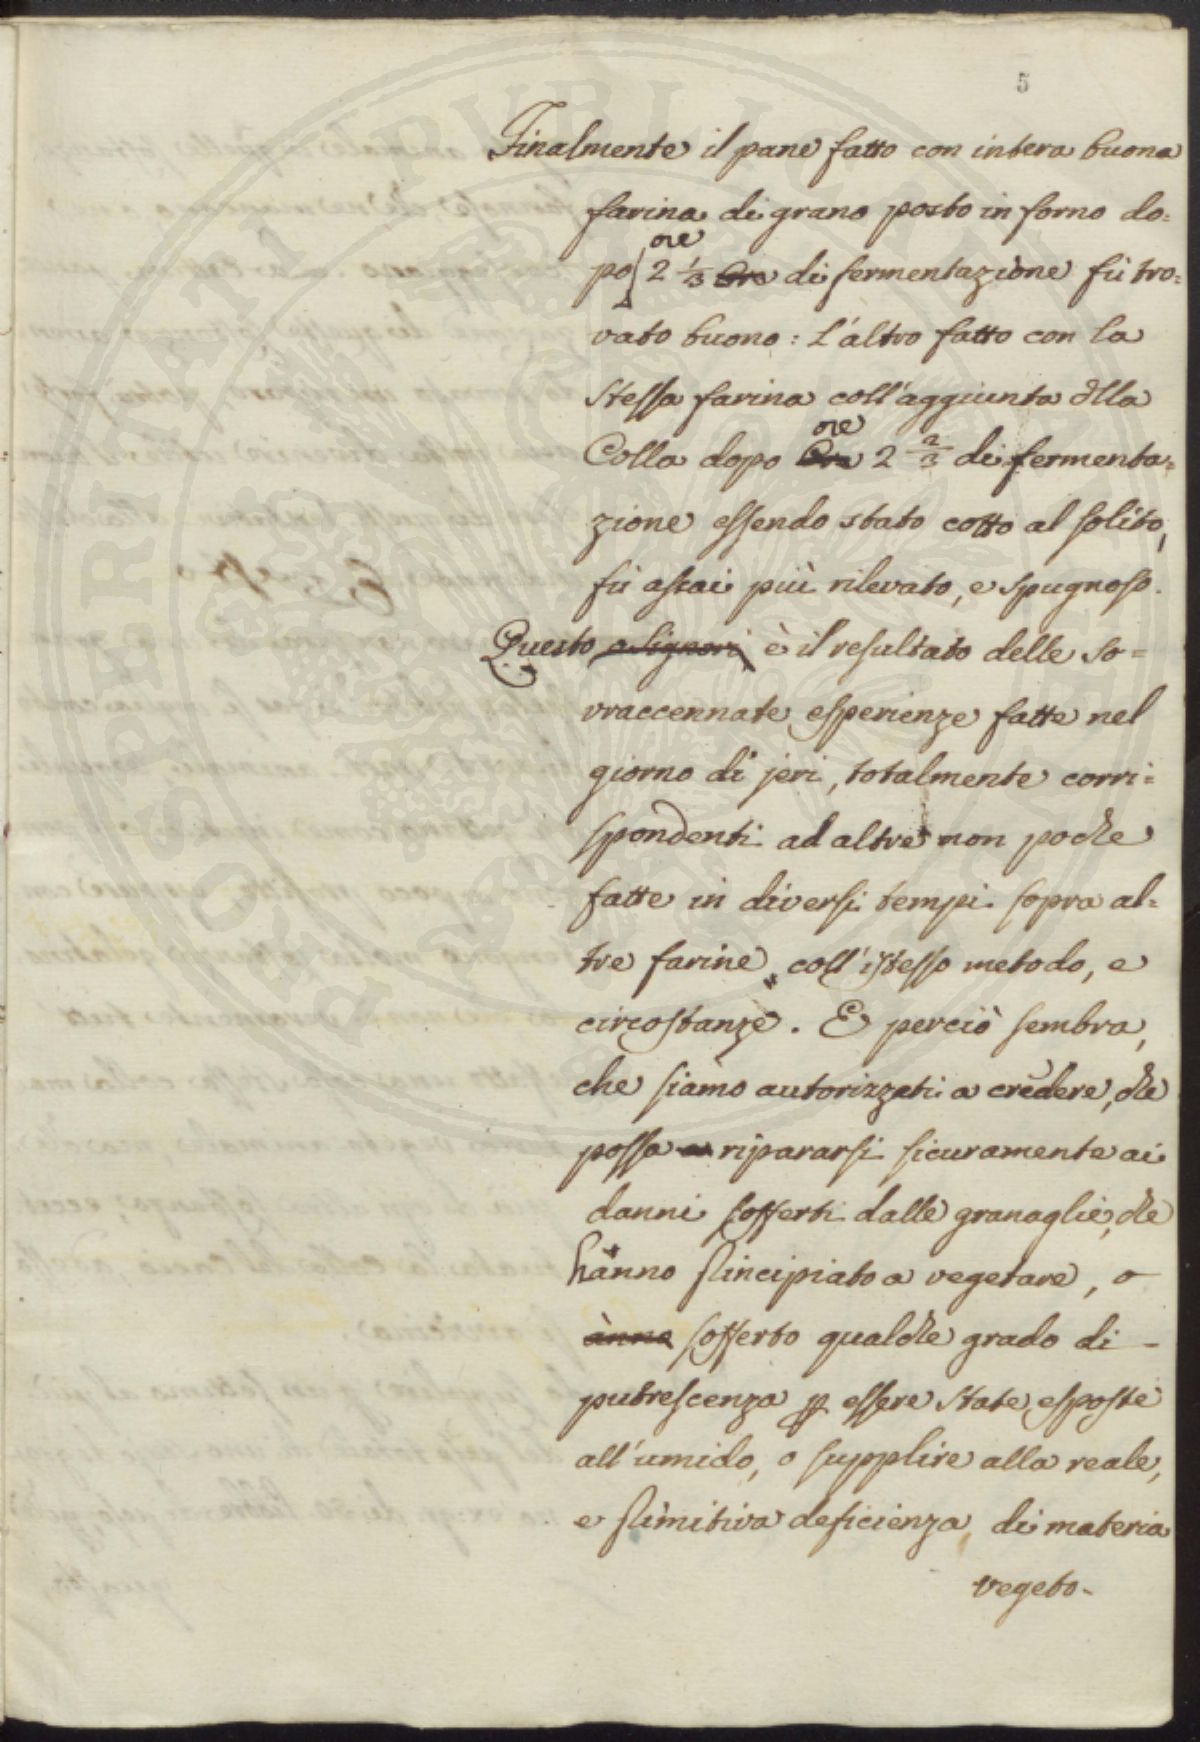 5
Finalmente il pane fatto con intera buona
farina di grano posto in forno do=
ore
po 2 1/3 Ore di fermentazione fù tro=
vato buono: L'altro fatto con la
stessa farina coll'aggiunta dlla
ore
Colla dopo Ore 2 2/3 di fermenta=
zione essendo stato cotto al solito,
fù assai più rilevato, e spugnoso.
Questo o Signori è il resultato delle so=
vraccennate esperienze fatte nel
giorno di jeri, totalmente corri=
spondenti ad altre non poche
fatte in diversi tempi sopra al=
tre farine coll'istesso metodo, e
circostanze. E perciò sembra,
che siamo autorizzati a credere, che
possa ripararsi sicuramente ai
danni sofferti dalle granaglie, che
hanno principiato a vegetare, o
ànno sofferto qualche grado di
putrescenza p essere state esposte
all'umido, o supplire alla reale,
e primitiva deficienza di materia
vegeto-
PROSPERITATI PUBLICAE